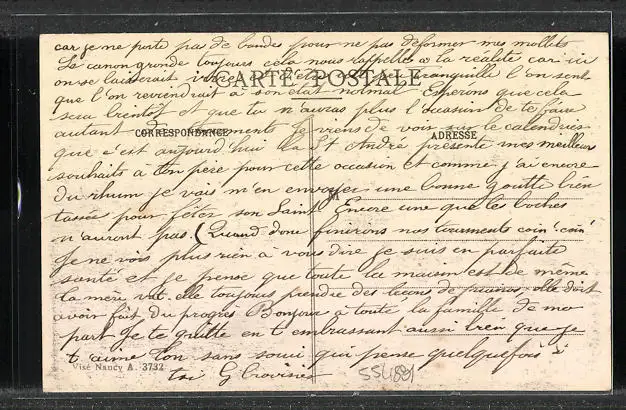 car je ne porte pas de bandes pour ne pas déformer mes mollets
Le canon gronde toujours cela nous rappelle a la réalité car ici
on se laisserait vivre tranquille l'on sent
CARTE POSTALE
que l'on reviendrait a son état normal Esperons que cela
sera bientôt et que tu n'auras plus l'occasion de te faire
autant de Je viens de voir sur le calendrier
CORRESPONDANCE
ADRESSE
que c'est aujourd'hui la St André présente mes meilleurs
souhaits a ton pere pour cette occasion et comme j'ai encore
du rhum je vais m'en envoyer une bonne goutte bien
tassée pour fêter son Saint Encore une que les boches
n'auront pas. (Quand donc finirons nos tourments coin! coin!
Je ne vois plus rien a vous dire je suis en parfaite
santé et je pense que toute la maison est de même
ta mère va t-elle toujours prendre des leçons de piano, elle doit
avoir fait du progres Bonjour a toute la famille de ma
part Je te quitte en t embrassant aussi bien que je
t'aime Ton sans souci qui pense quelquefois à
toi G
Visé Nancy A. 3732
554891